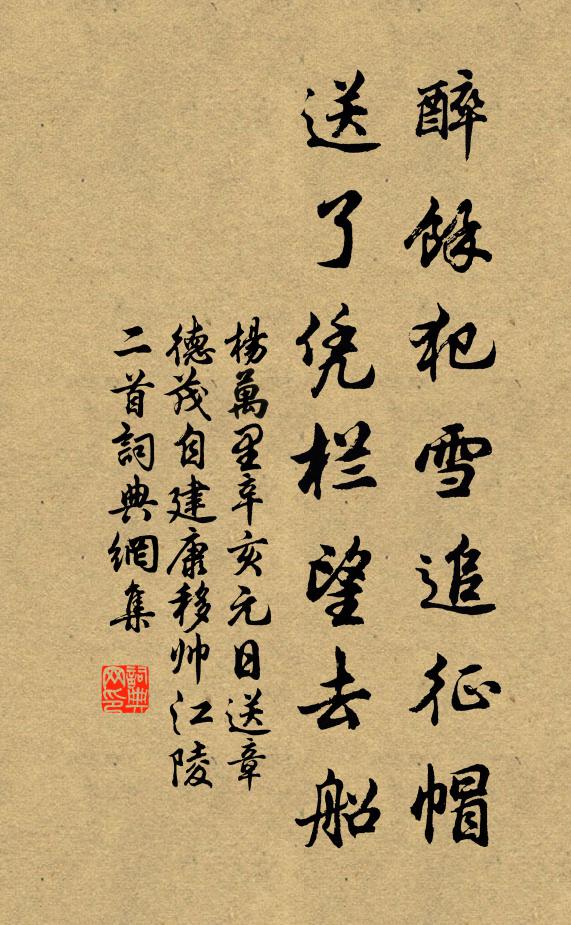 醉餘犯雪追征帽
送了凭栏望去船
楊萬里辛亥元日送章
德茂自建康移帅江陵
二首詞典網集
詞典网印